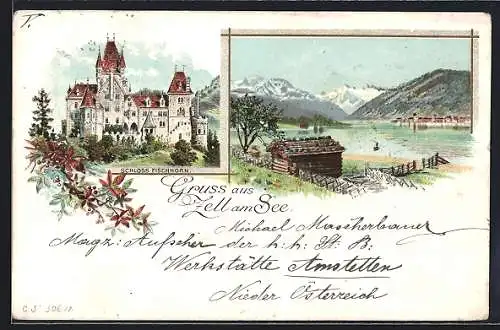 SCHLOSS FISCHHORN.
Gruss aus
Zell am See.
Michael Mascherbauer
Magz: Aufseher der k: k: St: B:
Werkstätte Amstetten
Nieder Österreich